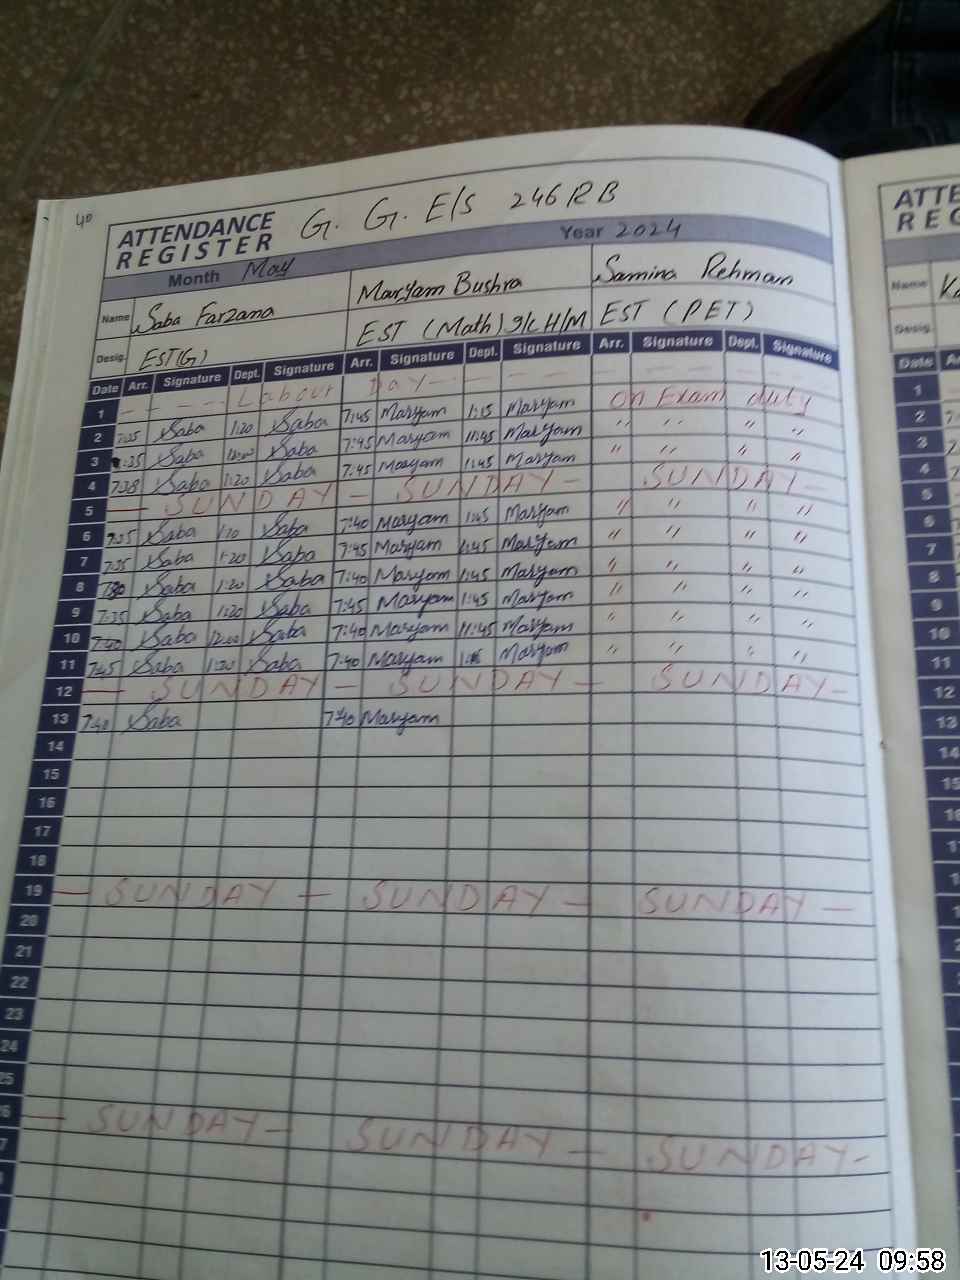 40
ATTENDANCE REGISTER G. G. E/S 246 RB
Month May Year 2024
Name Saba Farzana Maryam Bushra Samina Rehman
Desig. EST(G) EST (Math) I/C H/M EST (PET)
Date Arr. Signature Dept. Signature Arr. Signature Dept. Signature Arr. Signature Dept. Signature
1 - - - - - Labour Day - - - - - - - -
2 7:35 Saba 1:20 Saba 7:45 Maryam 1:15 Maryam On Exam duty
3 :35 Saba Saba 7:45 Maryam 11:45 Maryam " " " "
4 7:38 Saba 1:20 Saba 7:45 Maryam 1:45 Maryam " " " "
5 — SUNDAY — SUNDAY — SUNDAY —
6 7:35 Saba Saba 7:40 Maryam 1:45 Maryam " " " "
7 7:35 Saba 1:20 Saba 7:45 Maryam 1:45 Maryam " " " "
8 Saba 1:20 Saba 7:40 Maryam 1:45 Maryam " " " "
9 7:35 Saba 1:20 Saba 7:45 Maryam 1:45 Maryam " " " "
10 7:40 Saba Saba 7:40 Maryam 11:45 Maryam " " " "
11 7:45 Saba Saba 7:40 Maryam Maryam " " " "
12 — SUNDAY — SUNDAY — SUNDAY —
13 7:40 Saba 7:40 Maryam
14
15
16
17
18
19 — SUNDAY — SUNDAY — SUNDAY —
20
21
22
23
24
25
26 — SUNDAY — SUNDAY — SUNDAY —
ATTE
REG
Name Ka
Desig.
Date A
1
2
3
4
5
6
7
8
9
10
11
12
13
14
15
13-05-24 09:58